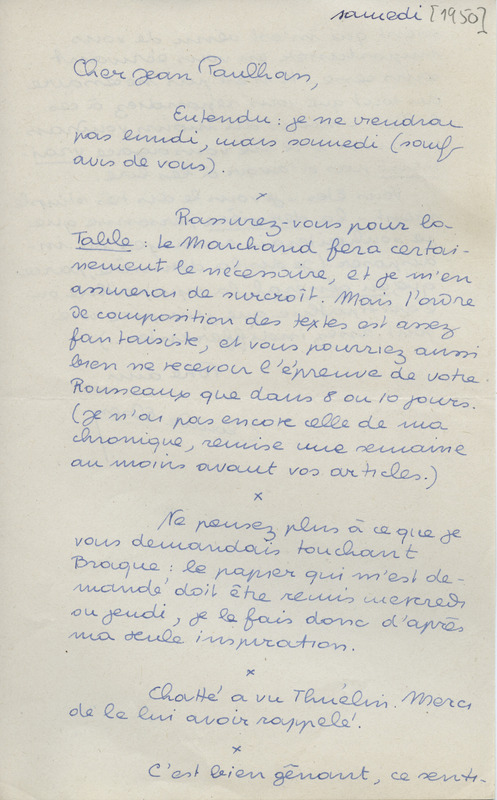 samedi [1950]
Cher Jean Paulhan,
Entendu : je ne viendrai
pas lundi, mais samedi (sauf
avis de vous).
x
Rassurez-vous pour la
Table : le Marchand fera certai-
nement le nécessaire, et je m'en
assurerai de surcroît. Mais l'ordre
de composition des textes est assez
fantaisiste, et vous pourriez aussi
bien ne recevoir l'épreuve de votre
Rousseaux que dans 8 ou 10 jours.
(Je n'ai pas encore celle de ma
chronique, remise une semaine
au moins avant vos articles.)
x
Ne pensez plus à ce que je
vous demandais touchant
Braque : le papier qui m'est de-
mandé doit être remis mercredi
ou jeudi, je le fais donc d'après
ma seule inspiration.
x
a vu Thuélin. Merci
de le lui avoir rappelé.
x
C'est bien gênant, ce senti-